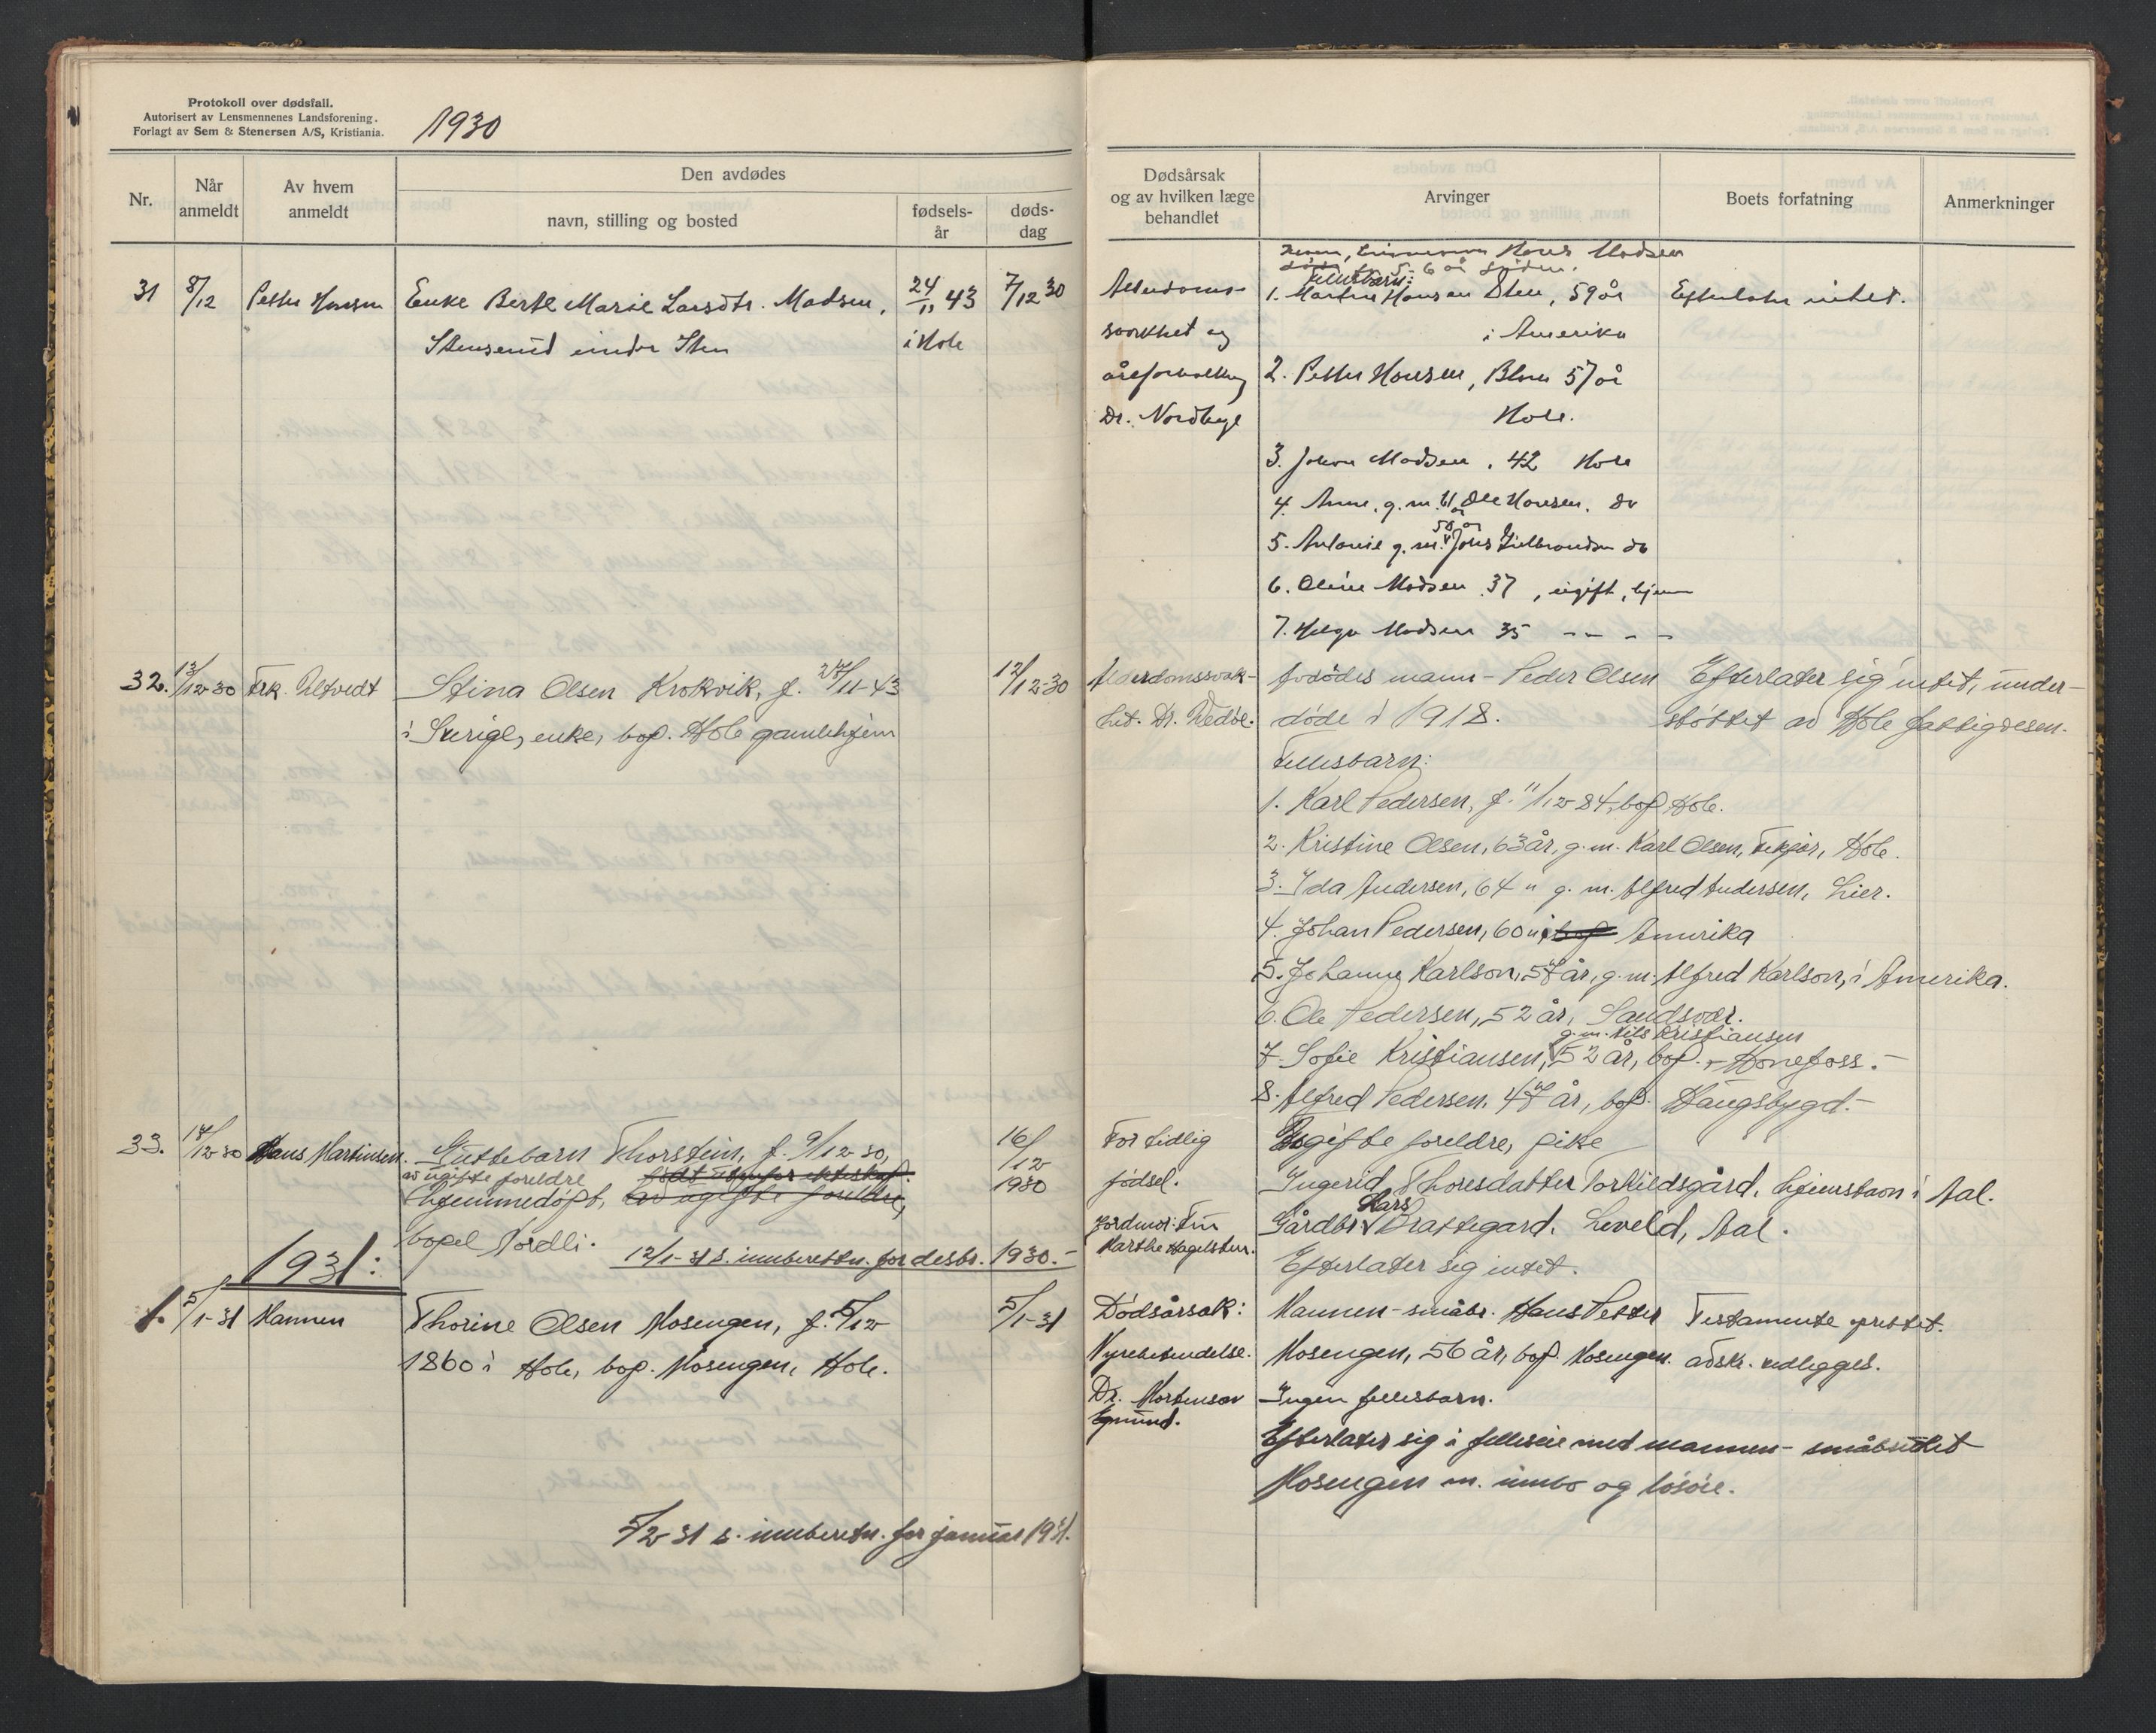 Protokoll over dødsfall.
Autorisert av Lensmennenes Landsforening.
Forlagt av Sem & Stenersen A/S, Kristiania.
1930
Nr.
Når anmeldt
Av hvem anmeldt
Den avdødes
navn, stilling og bosted
fødsels-år
døds-dag
31 8/12 Petter Hansen Enke Berte Marie Larsdtr. Madsen, 24/11 43 7/12 30
Stenserud under Sten i Hole
32. 13/12-30 Frk. Ultvedt Stina Olsen Krokvik, f. 27/11-43 12/12-30
i Sverige, enke, bop. Hole gamlehjem
33. 17/12-30 Hans Martinsen. Guttebarn Thorstein, f. 9/12-30, 16/12 1930
av ugifte foreldre født utenfor ekteskap.
hjemmedøpt, av ugifte foreldre,
bopel Nordli.
12/1-31 s. innberetn. for desbr. 1930.-
1931:
1. 5/1-31 Mannen Thorine Olsen Mosengen, f. 5/12 5/1-31
1860 i Hole, bop. Mosengen, Hole.
5/2-31 s. innberetn. for januar 1931.
Dødsårsak og av hvilken læge behandlet
Arvinger
Boets forfatning
Anmerkninger
Hans Madsen
døde for 5-6 år siden.
Fellesbarn:
Alderdoms- 1. Martin Hansen Sten, 59 år Efterlater intet.
svakhet og i Amerika
åreforkalkng 2. Petter Hansen, 57 år
Dr. Nordbye Hole.
3. Johan Madsen, 42 Hole
4. Anne, g.m. 61 år Ole Hansen. do
58 år
5. Antonie g.m. Johs Gulbrandsen do
6. Oline Madsen 37, ugift, hjemme
7. Helga Madsen 35 - - - -
Alderdomssvak- Avdødes mann - Peder Olsen Efterlater sig intet, under-
het. Dr. Wedøe. døde i 1918. støttet av Hole fattigvesen.
Fellesbarn:
1. Karl Pedersen, f. 11/12-84, bop. Hole.
2. Kristine Olsen, 63 år, g.m. Karl Olsen, Fekjær, Hole.
3. Ida Andersen, 64 " g.m. Alfred Andersen, Lier.
4. Johan Pedersen, 60 " i bop Amerika
5. Johanne Karlson, 57 år, g.m. Alfred Karlson, i Amerika.
6. Ole Pedersen, 52 år, Sandsvær.
g.m. Nils Kristiansen
7. Sofie Kristiansen, 52 år, bop. Hønefoss.-
8. Alfred Pedersen, 47 år, bop. Haugsbygd.-
For tidlig Ugifte foreldre, pike
fødsel. Ingerid Thoresdatter Torkildsgård, hjemstavn i Aal.
Lars
Jordmor: Fru Gårdbr. Brattegard, Leveld, Aal.
Marthe Hagelsten.
Efterlater sig intet.
Dødsårsak: Mannen - småbr. Hans Petter Testamente oprettet.
Nyrebetendelse. Mosengen, 56 år, bop. Mosengen. avskr. vedlegges.
Dr. Mortensen Ingen fellesbarn.
Efterlater sig i felleseie med mannen - småbruket
Mosengen m. innbo og løsøre.